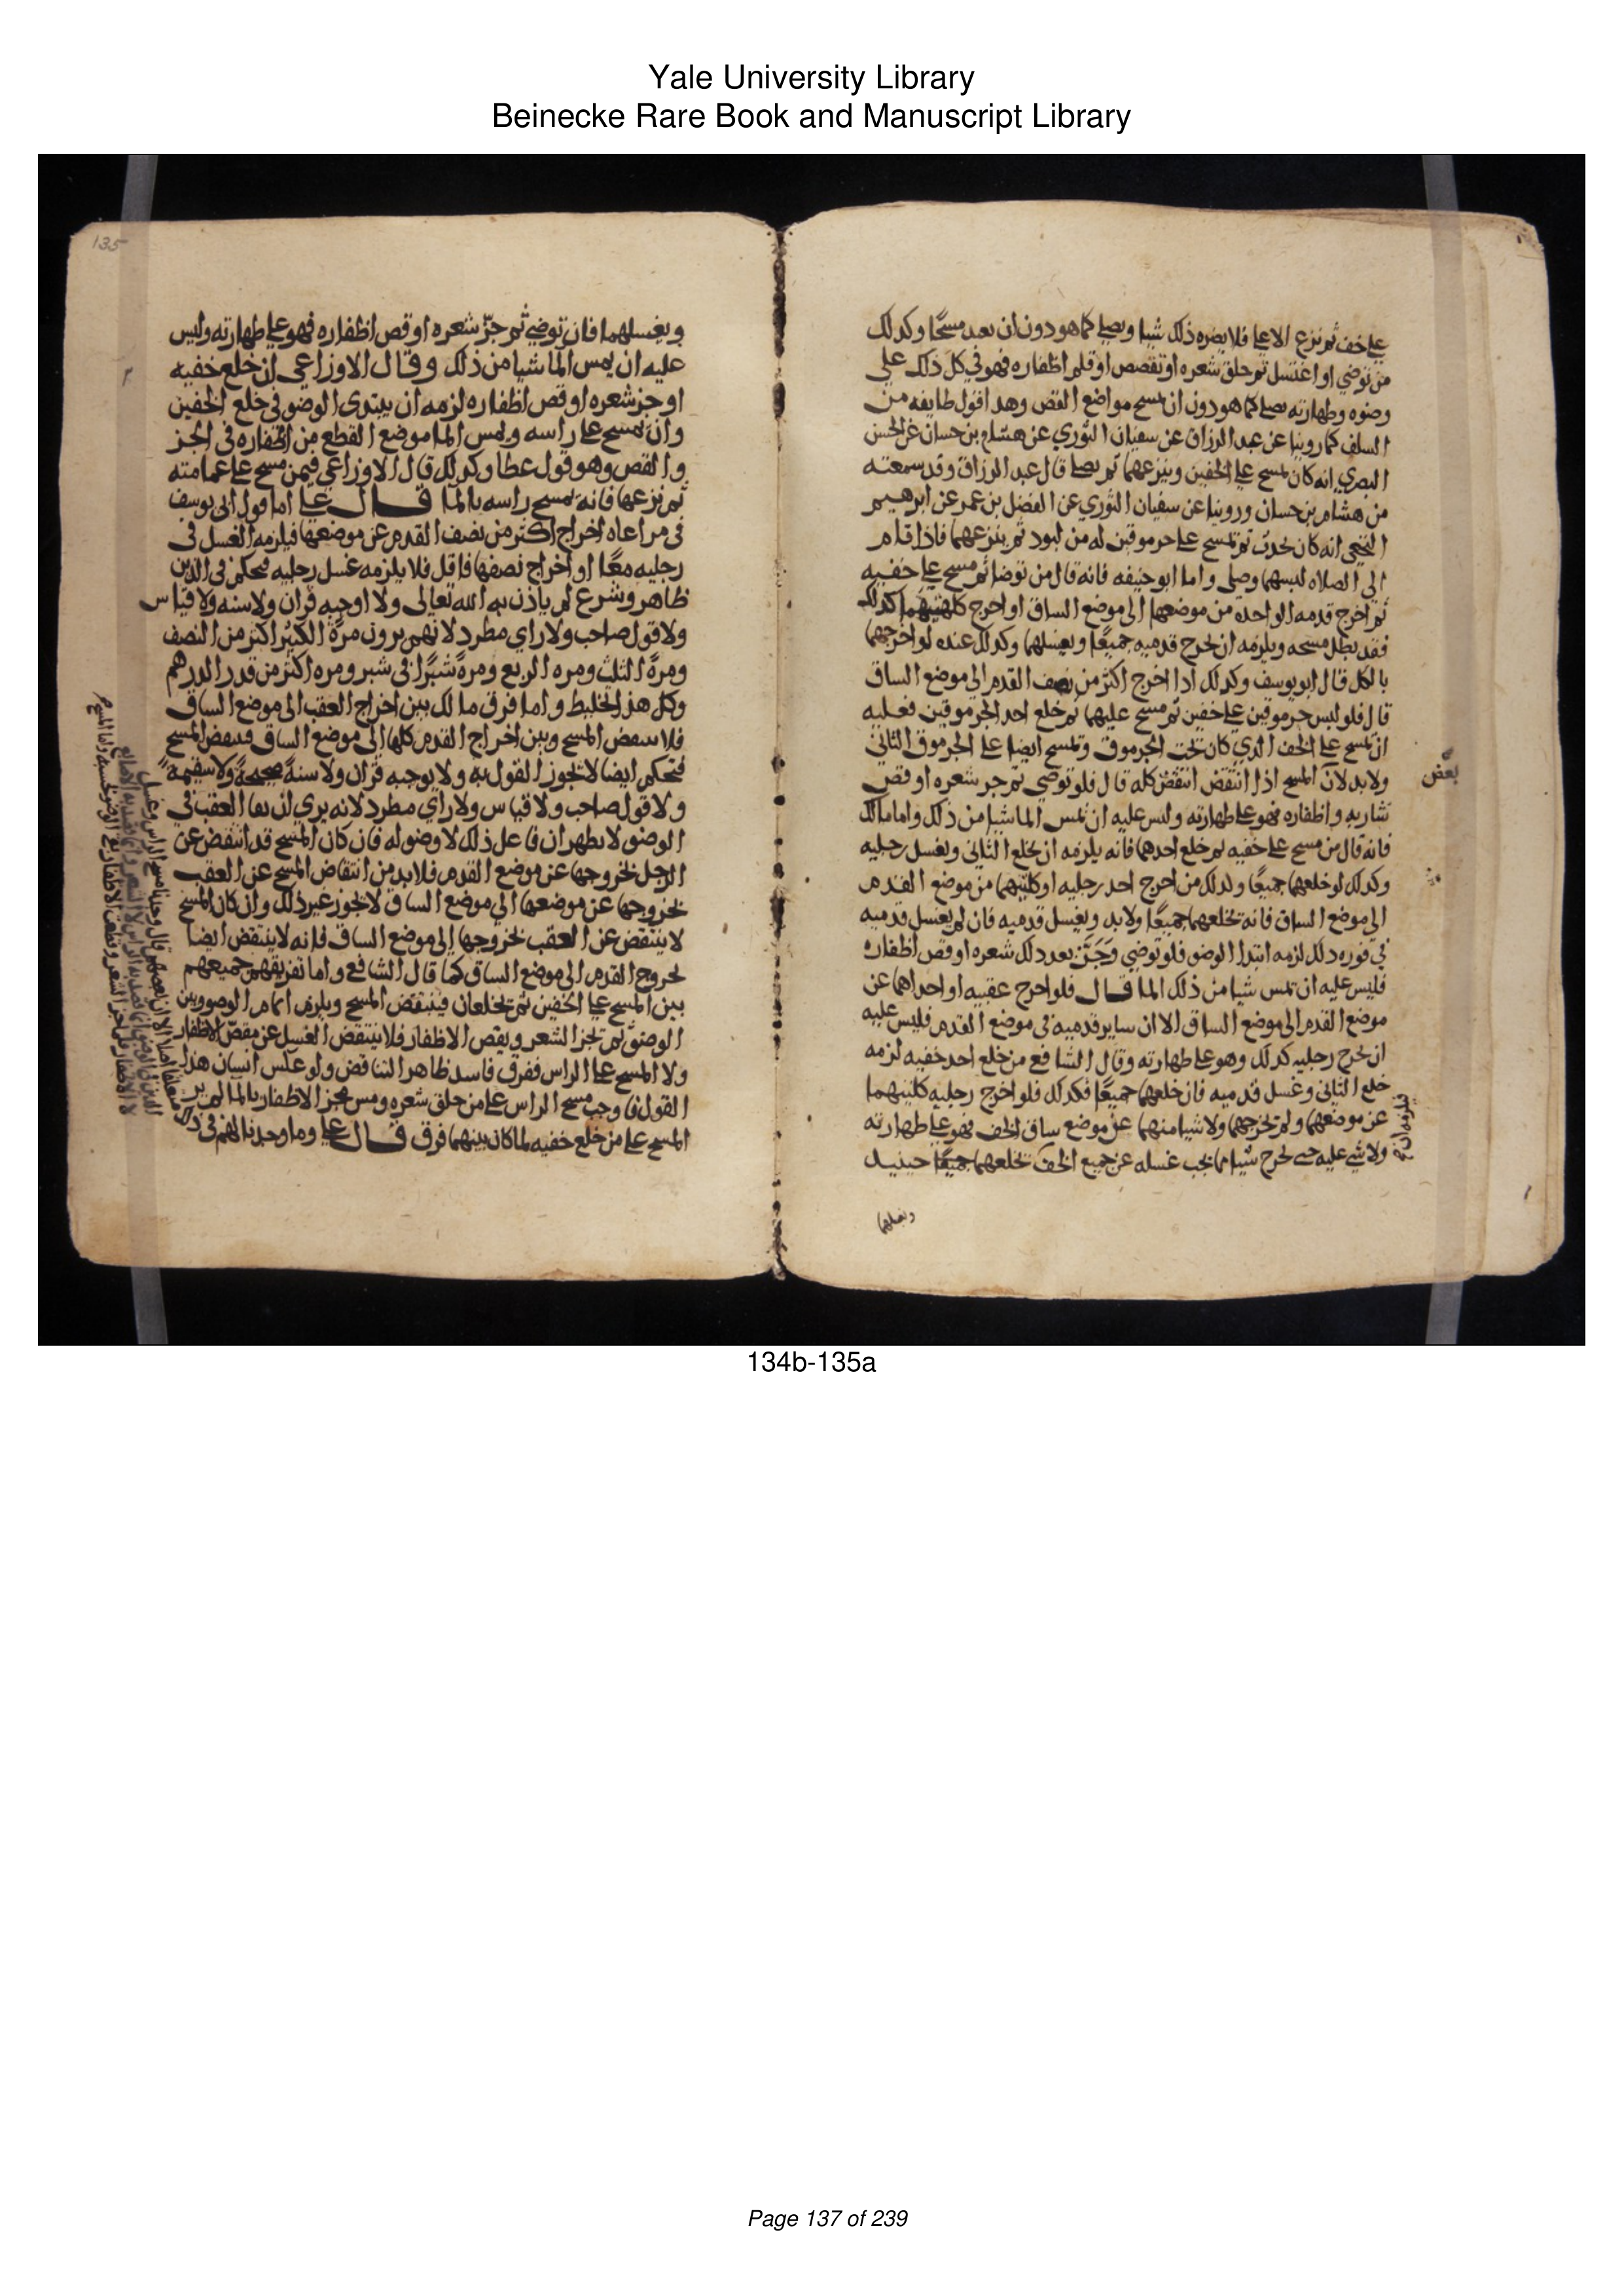 Yale University Library
Beinecke Rare Book and Manuscript Library
على خف ثم نزع الاعلى فلا يضره ذلك شيا ويصلى كما هو دون ان يعيد مسحًا وكذلك
من توضى او اغتسل ثم حلق شعره او تقصص او قلم اظفاره فهو في كل ذلك على
وضوه وطهارته يصلى كما هو دون ان يمسح مواضع القص وهذا قول طايفه من
السلف كما روينا عن عبد الرزاق عن سفيان الثوري عن هشام بن حسان عن الحسن
البصري انه كان يمسح على الخفين وينزعهما ثم يصلى قال عبد الرزاق وقد سمعته
من هشام بن حسان وروينا عن سفيان الثوري عن الفضل بن عمر عن ابرهيم
النخعي انه كان يحدث ثم يمسح على جرموقين له من لبود ثم ينزعهما فاذا قام
الى الصلاه لبسهما وصلى واما ابو حنيفه فانه قال من توضا ثم مسح على خفيه
ثم اخرج قدمه الواحده من موضعها الى موضع الساق او اخرج كلتيهما كذلك
فقد بطل مسحه ويلزمه ان يخرج قدميه جميعًا ويغسلهما وكذلك عنده لو اخرجهما
بالكل قال ابو يوسف وكذلك اذا اخرج اكثر من نصف القدم الى موضع الساق
قال فلو لبس جرموقين على خفين ثم مسح عليهما ثم خلع احد الجرموقين فعليه
ان يمسح على الخف الذي كان تحت الجرموق ويمسح ايضا على الجرموق الثاني
ولا بد لان المسح اذا انتقض انتقض كله قال فلو توضى ثم جز شعره او قص
بعض
شاربه واظفاره فهو على طهارته وليس عليه ان يمس الما شيا من ذلك واما مالك
فانه قال من مسح على خفيه ثم خلع احدهما فانه يلزمه ان يخلع الثاني ويغسل رجليه
وكذلك لو خلعهما جميعًا وكذلك من اخرج احد رجليه او كلتيهما من موضع القدم
الى موضع الساق فانه يخلعهما جميعًا ولا بد ويغسل قدميه فان لم يغسل قدميه
في فوره ذلك لزمه ابتدا الوضو فلو توضى وجز بعد ذلك شعره او قص اظفاره
فليس عليه ان يمس شيا من ذلك الما قال فلو اخرج عقبيه او احداهما عن
موضع القدم الى موضع الساق الا ان ساير قدميه في موضع القدم فليس عليه
ان يخرج رجليه كذلك وهو على طهارته وقال الشافعي من خلع احد خفيه لزمه
خلع الثاني وغسل قدميه فان خلعهما جميعًا فكذلك فلو اخرج رجليه كلتيهما
عن موضعهما ولم يخرجهما ولا شيا منهما عن موضع ساق الخف فهو على طهارته
ولا شي عليه حتى يخرج شيا مما يجب غسله عن جميع الخف يخلعهما جميعًا حينيذ
فيلزمه ان
ويغسلهما
135
ويغسلهما فان توضى ثم جز شعره او قص اظفاره فهو على طهارته وليس
عليه ان يمس الما شيا من ذلك وقال الاوزاعي ان خلع خفيه
او جز شعره او قص اظفاره لزمه ان يبتدى الوضو في خلع الخفين
وان يمسح على راسه ويمس الما موضع القطع من اظفاره في الجز
والقص وهو قول عطا وكذلك قال الاوزاعي فيمن مسح على عمامته
ثم نزعها فانه يمسح راسه بالما قال على اما قول ابي يوسف
في مراعاه اخراج اكثر من نصف القدم عن موضعها فيلزمه الغسل في
رجليه معًا او اخراج نصفها فاقل فلا يلزمه غسل رجليه فتحكم في الدين
ظاهر وشرع لم ياذن به الله تعالى ولا اوجبه قران ولا سنه ولا قياس
ولا قول صاحب ولا راي مطرد لانهم يرون مرة الكثير اكثر من النصف
ومرة الثلث ومره الربع ومرة شبرًا في شبر ومره اكثر من قدر الدرهم
وكل هذا تخليط واما فرق مالك بين اخراج العقب الى موضع الساق
فلا ينتقض المسح وبين اخراج القدم كلها الى موضع الساق فينتقض المسح
فتحكم ايضا لا يجوز القول به ولا يوجبه قران ولا سنة صحيحة ولا سقيمة
ولا قول صاحب ولا قياس ولا راي مطرد لانه يري ان بقا العقب في
الوضو لا يطهر ان فاعل ذلك لا وضو له فان كان المسح قد انتقض عن
الرجل بخروجها عن موضع القدم فلا بد من انتقاض المسح عن العقب
بخروجها عن موضعها الى موضع الساق لا يجوز غير ذلك وان كان المسح
لا ينتقض عن العقب بخروجها الى موضع الساق فانه لا ينتقض ايضا
بخروج القدم الى موضع الساق كما قال الشافعي واما تفريقهم جميعهم
بين المسح على الخفين ثم يخلعان فينتقض المسح ويلزم اتمام الوضو وبين
الوضو ثم يجز الشعر ويقص الاظفار فلا ينتقض الغسل عن مقص الاظفار
ولا المسح على الراس ففرق فاسد ظاهر التناقض ولو عكس انسان هذا
القول فاوجب مسح الراس على من حلق شعره ومس مجز الاظفار بالما لم ير
المسح على من خلع خفيه لما كان بينهما فرق قال على وما وجدنا لهم في ذلك
134b-135a
Page 137 of 239